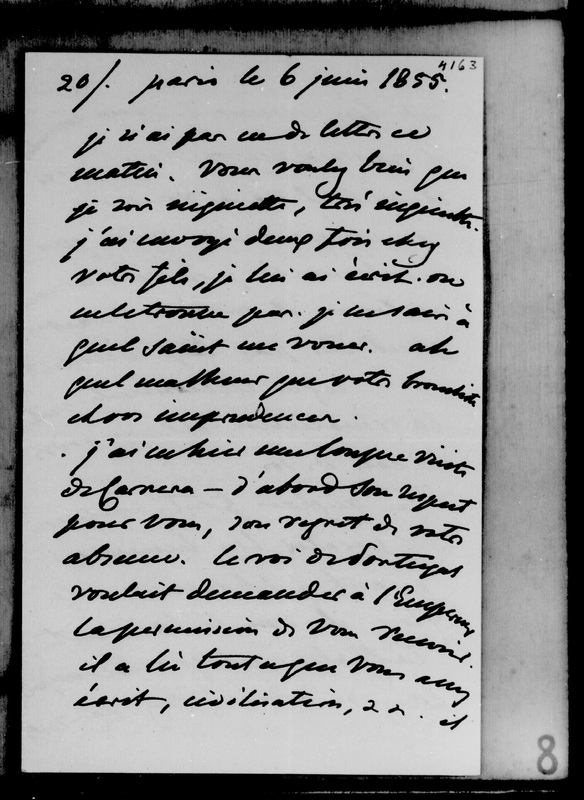 4163
20/. paris le 6 juin 1855.
je n'ai pas eu de lettre ce
matin. Vous voulez bien que
je sois inquiette, très inquiette.
j'ai envoyé deux fois chez
votre fils, je lui ai écrit. on
ne le trouve pas. je ne sais à
quel saint me vouer. ah
quel malheur que votre bronchite
et vos imprudences.
. j'ai eu hier une longue visite
de Carrera — d'abord son respect
pour vous, son regret de votre
absence. le roi de Portugal
voulait demander à l'Empereur
la permission de vous revoir.
il a lu tout ce que vous avez
écrit, civilisation, &&. il
8